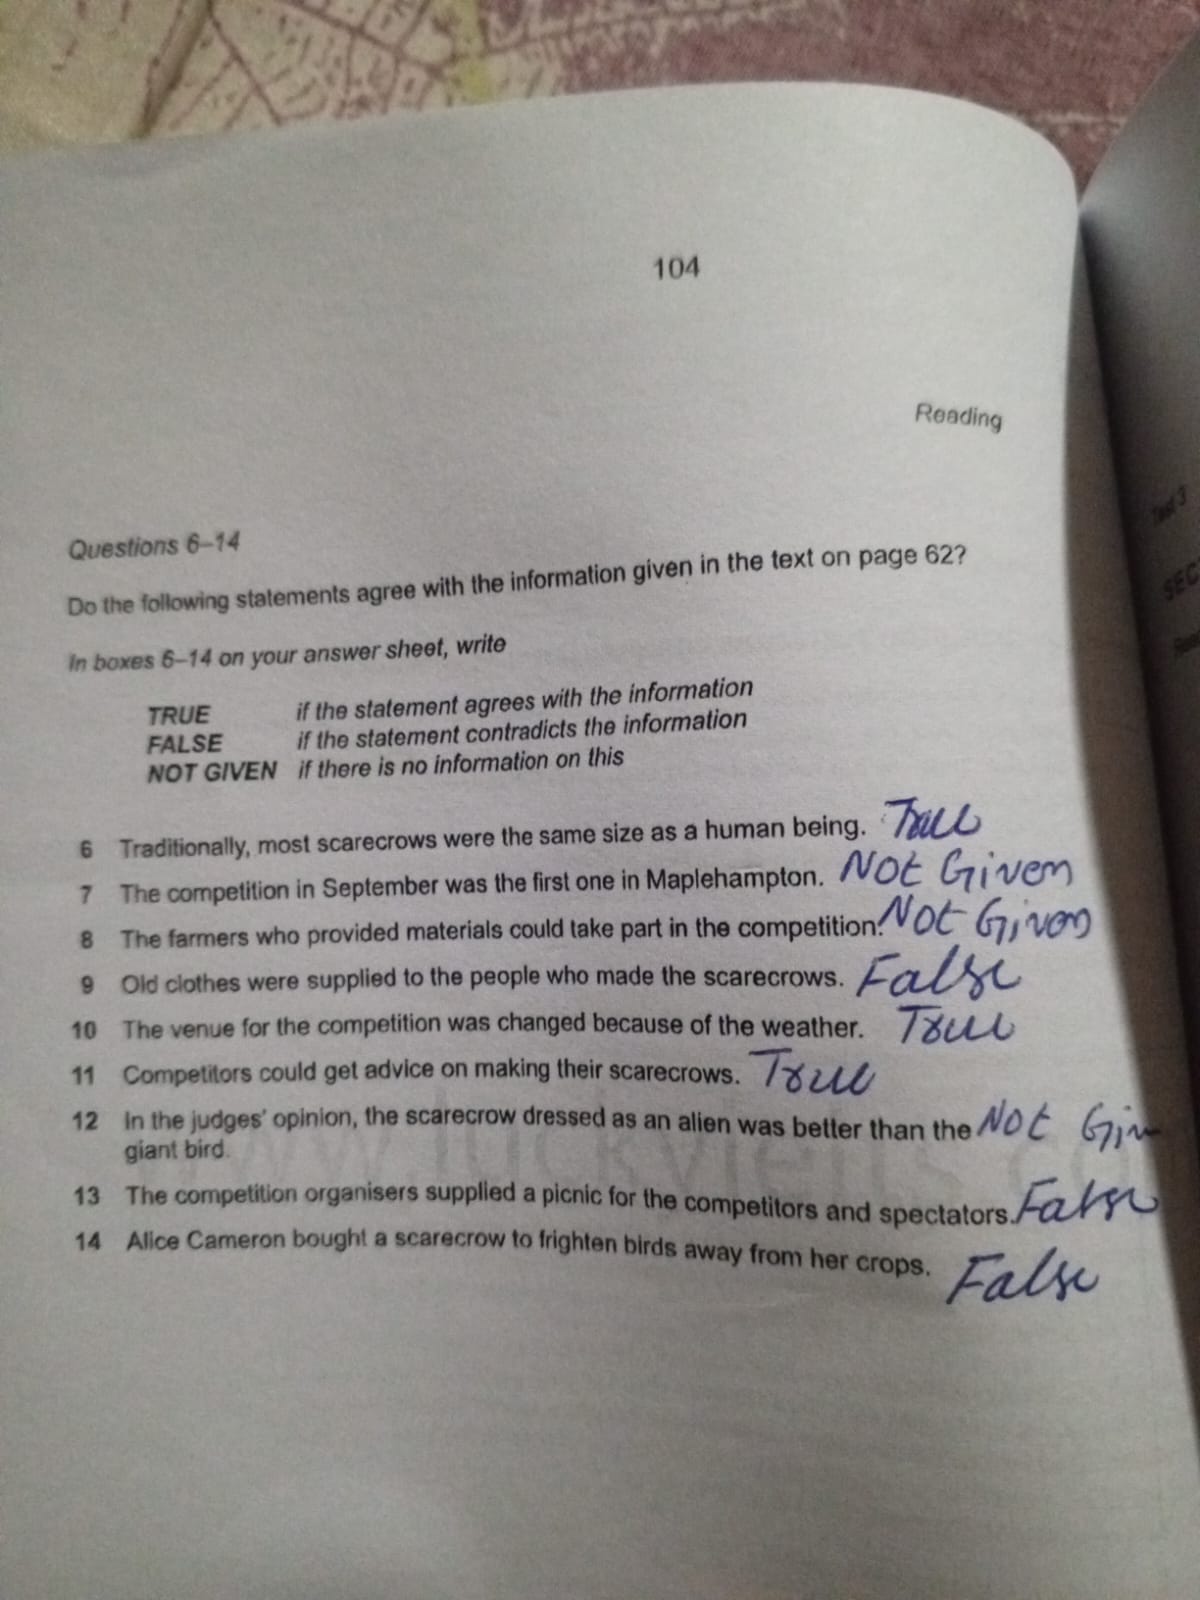 104
Reading
Questions 6–14
Do the following statements agree with the information given in the text on page 62?
In boxes 6–14 on your answer sheet, write
TRUE if the statement agrees with the information
FALSE if the statement contradicts the information
NOT GIVEN if there is no information on this
6 Traditionally, most scarecrows were the same size as a human being. True
7 The competition in September was the first one in Maplehampton. Not Given
8 The farmers who provided materials could take part in the competition. Not Given
9 Old clothes were supplied to the people who made the scarecrows. False
10 The venue for the competition was changed because of the weather. True
11 Competitors could get advice on making their scarecrows. True
12 In the judges' opinion, the scarecrow dressed as an alien was better than the Not Giv
giant bird.
13 The competition organisers supplied a picnic for the competitors and spectators. False
14 Alice Cameron bought a scarecrow to frighten birds away from her crops. False
Test 3